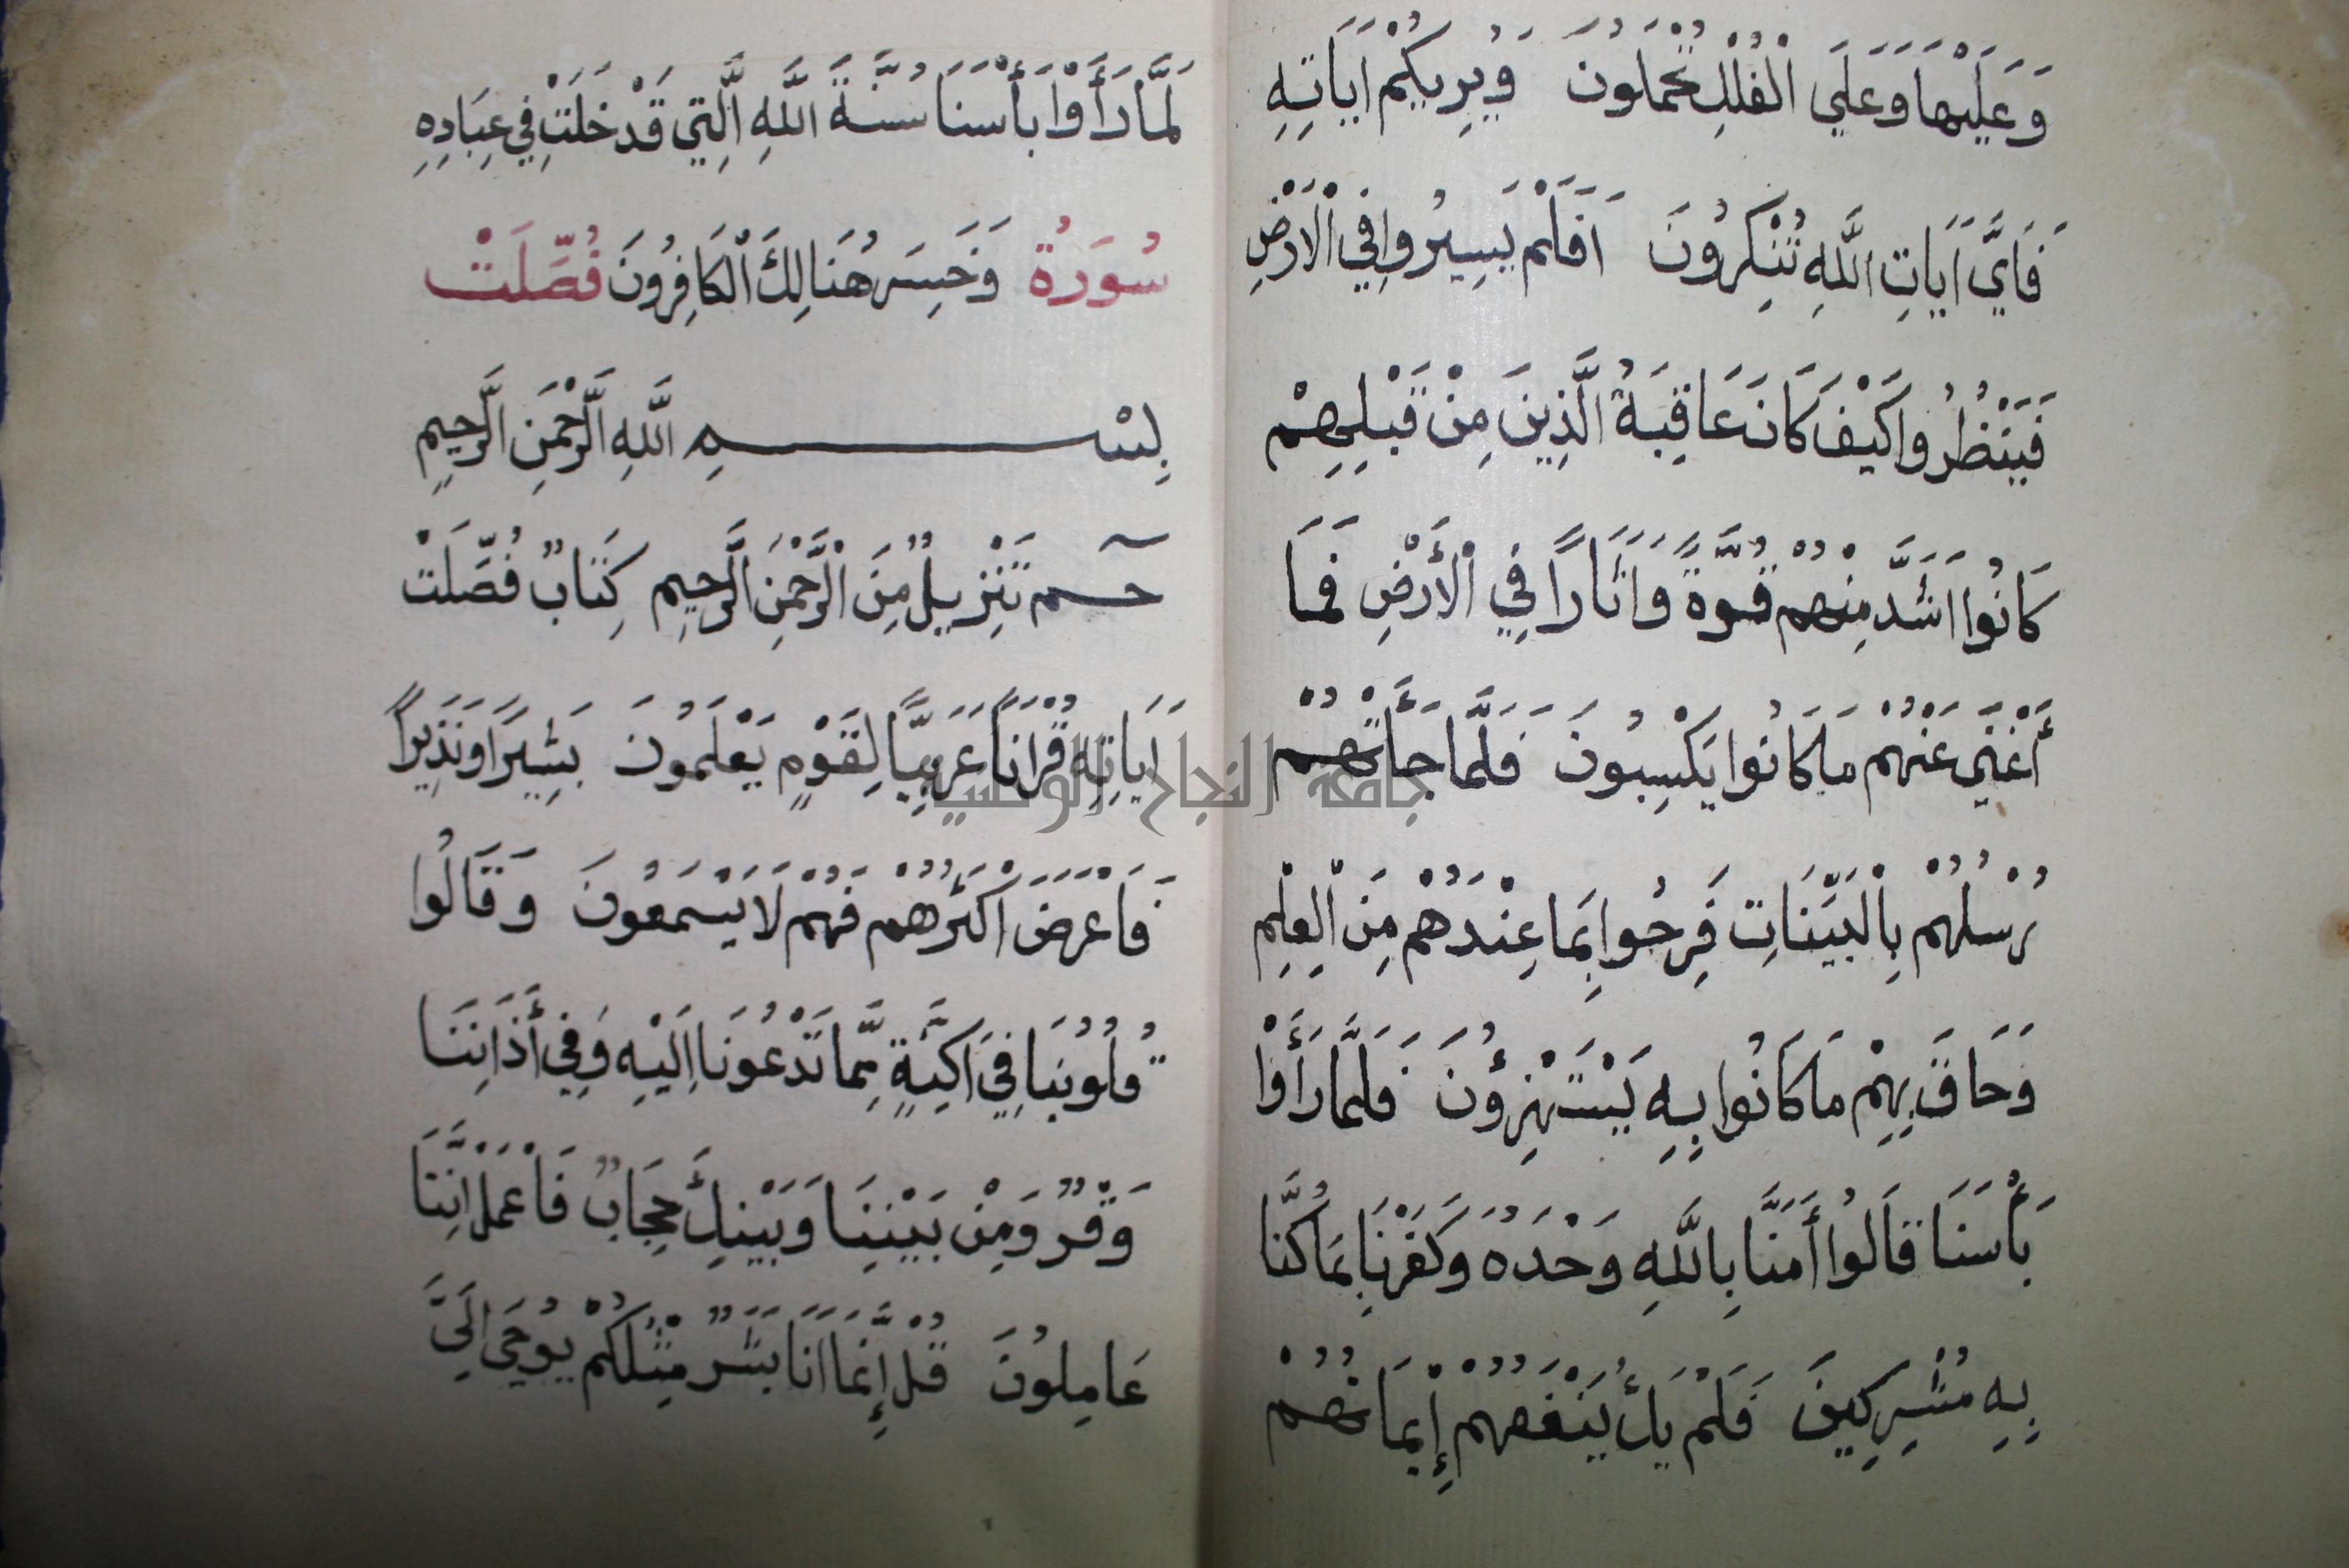 وَعَلَيْهَا وَعَلَي الْفُلْكِ تُحْمَلُونَ وَيُرِيكُمْ اَيَاتِهِ
فَاَيَّ اَيَاتِ اللَّهِ تُنْكِرُونَ اَفَلَمْ يَسِيرُوا فِي الْاَرْضِ
فَيَنْظُرُوا كَيْفَ كَانَ عَاقِبَةُ الَّذِينَ مِنْ قَبْلِهِمْ
كَانُوا اَشَدَّ مِنْهُمْ قُوَّةً وَاَثَارًا فِي الْأَرْضِ فَمَا
أَغْنَي عَنْهُمْ مَا كَانُوا يَكْسِبُونَ فَلَمَّا جَأَتْهُمْ
رُسْلُهُمْ بِالْبَيِّنَاتِ فَرِحُوا بِمَا عِنْدَهُمْ مِنَ الْعِلْمِ
وَحَاقَ بِهِمْ مَا كَانُوا بِهِ يَسْتَهْزِؤُنَ فَلَمَّا رَأَوْا
بَأْسَنَا قَالُوا أَمَنَّا بِاللَّهِ وَحْدَهُ وَكَفَرْنَا بِمَا كُنَّا
بِهِ مُشْرِكِينَ فَلَمْ يَكُ يَنْفَعُهُمْ إِيْمَانُهُمْ
لَمَّا رَأَوْا بَأْسَنَا سُنَّةَ اللَّهِ الَّتِي قَدْ خَلَتْ فِي عِبَادِهِ
سُوَرَةُ وَخَسِرَ هُنَالِكَ الْكَافِرُونَ فُصِّلَتْ
بِسْمِ اللَّهِ الرَّحْمَنِ الرَّحِيمِ
حم تَنْزِيلٌ مِنَ الرَّحْمَنِ الرَّحِيمِ كِتَابٌ فُصِّلَتْ
اَيَاتِهُ قُرْاَنًا عَرَبِيًّا لِقَوْمٍ يَعْلَمُونَ بَشِيرًا وَنَذِيرًا
فَاَعْرَضَ اَكْثَرُهُمْ فَهُمْ لَا يَسْمَعُونَ وَقَالُوا
قُلُوبُنَا فِي اَكِنَّةٍ مِمَّا تَدْعُونَا اِلَيْهِ وَفِي أَذَانِنَا
وَقْرٌ وَمِنْ بَيْنِنَا وَبَيْنِكَ حِجَابٌ فَاعْمَلْ اِنَّنَا
عَامِلُونَ قُلْ إِنَّمَا اَنَا بَشَرٌ مِثْلُكُمْ يُوحَي اِلَيَّ
جامعة النجاح الوطنية